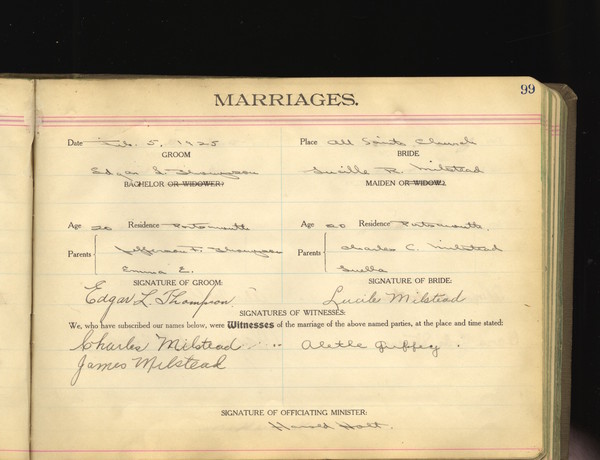 99
MARRIAGES.
Date Feb. 5, 1925 Place All Saints Church
GROOM BRIDE
Edgar L. Thompson Lucille R. Milstead
BACHELOR OR WIDOWER: MAIDEN OR WIDOW:
Age 20 Residence Portsmouth Age 20 Residence Portsmouth.
Parents Jefferson F. Thompson Parents Charles C. Milstead
Emma E. Luella
SIGNATURE OF GROOM: SIGNATURE OF BRIDE:
Edgar L. Thompson. Lucile Milstead
SIGNATURES OF WITNESSES:
We, who have subscribed our names below, were Witnesses of the marriage of the above named parties, at the place and time stated:
Charles Milstead
James Milstead
SIGNATURE OF OFFICIATING MINISTER:
Harold Holt.